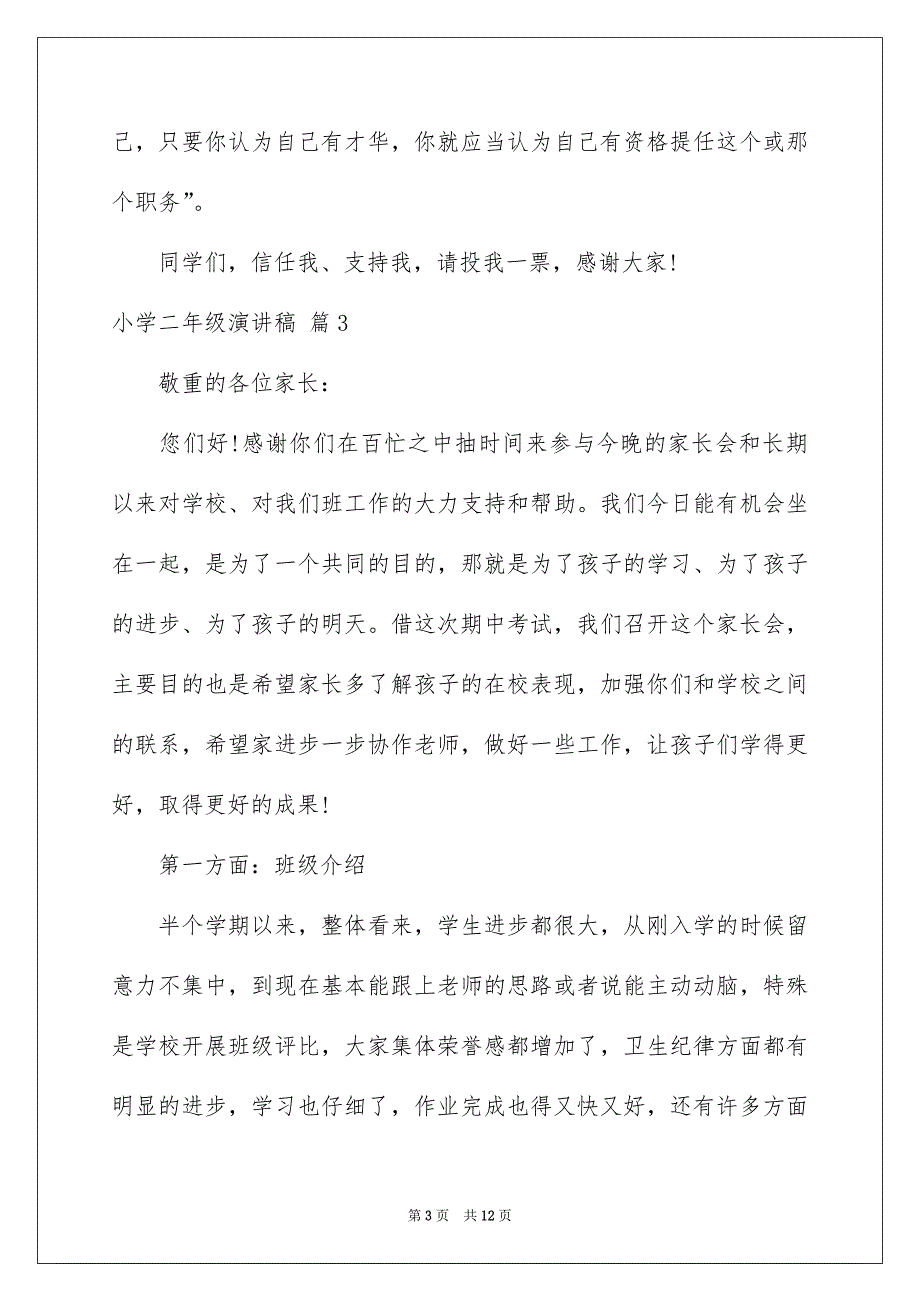 己，只要你认为自己有才华，你就应当认为自己有资格提任这个或那
个职务”。
同学们，信任我、支持我，请投我一票，感谢大家!
小学二年级演讲稿 篇3
敬重的各位家长：
您们好!感谢你们在百忙之中抽时间来参与今晚的家长会和长期
以来对学校、对我们班工作的大力支持和帮助。我们今日能有机会坐
在一起，是为了一个共同的目的，那就是为了孩子的学习、为了孩子
的进步、为了孩子的明天。借这次期中考试，我们召开这个家长会，
主要目的也是希望家长多了解孩子的在校表现，加强你们和学校之间
的联系，希望家进步一步协作老师，做好一些工作，让孩子们学得更
好，取得更好的成果!
第一方面：班级介绍
半个学期以来，整体看来，学生进步都很大，从刚入学的时候留
意力不集中，到现在基本能跟上老师的思路或者说能主动动脑，特殊
是学校开展班级评比，大家集体荣誉感都增加了，卫生纪律方面都有
明显的进步，学习也仔细了，作业完成也得又快又好，还有许多方面
第 3 页 共 12 页